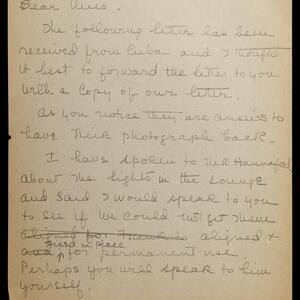 Dear
The following letter has been
received from Cuba and I thought
it best to forward the letter to you
with a Copy of our letter.
As you notice they are anxious to
have their photograph back.
I have spoken to
about the lights in the Lounge
and said I would speak to you
to see if we could not get them
aligned &
and fixed in place
for permanent use
Perhaps you will speak to him
yourself.